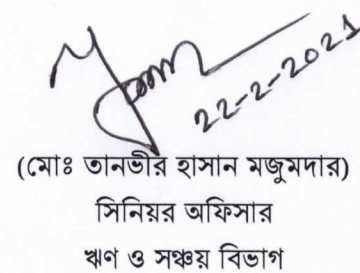 22-2-2021
(মোঃ তানভীর হাসান মজুমদার)
সিনিয়র অফিসার
ঋণ ও সঞ্চয় বিভাগ